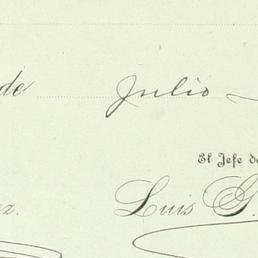 de Julio
El Jefe de
Luis G.
ez.